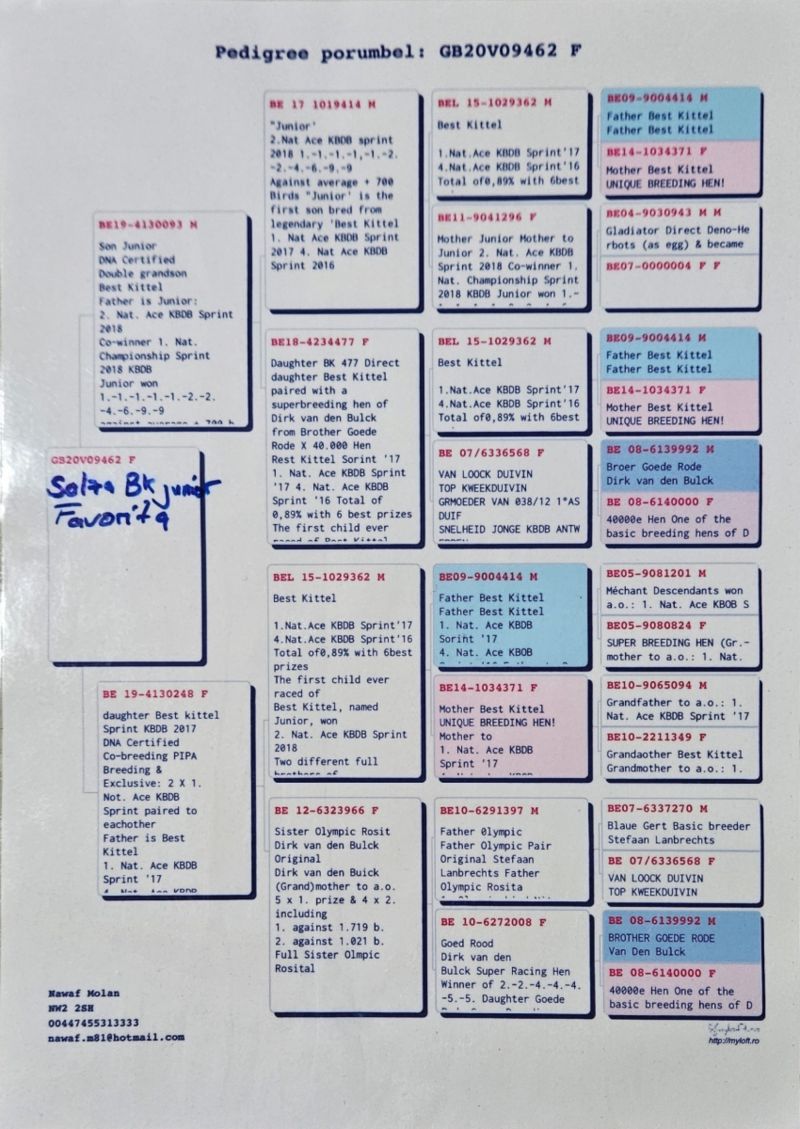 Pedigree porumbel: GB20V09462 F
GB20V09462 F
BK junior
Favorita
BE19-4130093 M
Son Junior
DNA Certified
Double grandson
Best Kittel
Father is Junior:
2. Nat. Ace KBDB Sprint
2018
Co-winner 1. Nat.
Championship Sprint
2018 KBDB
Junior won
1.-1.-1.-1.-1.-2.-2.
-4.-6.-9.-9
against average + 700 b
BE 19-4130248 F
daughter Best kittel
Sprint KBDB 2017
DNA Certified
Co-breeding PIPA
Breeding &
Exclusive: 2 X 1.
Not. Ace KBDB
Sprint paired to
eachother
Father is Best
Kittel
1. Nat. Ace KBDB
Sprint '17
4. Nat. Ace KBDB
BE 17 1019414 M
"Junior'
2.Nat Ace KBDB sprint
2018 1.-1.-1.-1,-1.-2.
-2.-4.-6.-9.-9
Against average + 700
Birds "Junior' is the
first son bred from
legendary 'Best Kittel
1. Nat Ace KBDB Sprint
2017 4. Nat Ace KBDB
Sprint 2016
BE18-4234477 F
Daughter BK 477 Direct
daughter Best Kittel
paired with a
superbreeding hen of
Dirk van den Bulck
from Brother Goede
Rode X 40.000 Hen
Rest Kittel Sorint '17
1. Nat. Ace KBDB Sprint
'17 4. Nat. Ace KBDB
Sprint '16 Total of
0,89% with 6 best prizes
The first child ever
raced of Best Kittel
BEL 15-1029362 M
Best Kittel
1.Nat.Ace KBDB Sprint'17
4.Nat.Ace KBDB Sprint'16
Total of0,89% with 6best
prizes
The first child ever
raced of
Best Kittel, named
Junior, won
2. Nat. Ace KBDB Sprint
2018
Two different full
brothers of
BE 12-6323966 F
Sister Olympic Rosit
Dirk van den Bulck
Original
Dirk van den Buick
(Grand)mother to a.o.
5 x 1. prize & 4 x 2.
including
1. against 1.719 b.
2. against 1.021 b.
Full Sister Olmpic
Rosital
BEL 15-1029362 M
Best Kittel
1.Nat.Ace KBDB Sprint'17
4.Nat.Ace KBDB Sprint'16
Total of0,89% with 6best
BE11-9041296 F
Mother Junior Mother to
Junior 2. Nat. Ace KBDB
Sprint 2018 Co-winner 1.
Nat. Championship Sprint
2018 KBDB Junior won 1.-
BEL 15-1029362 M
Best Kittel
1.Nat.Ace KBDB Sprint'17
4.Nat.Ace KBDB Sprint'16
Total of0,89% with 6best
BE 07/6336568 F
VAN LOOCK DUIVIN
TOP KWEEKDUIVIN
GRMOEDER VAN 038/12 1*AS
DUIF
SNELHEID JONGE KBDB ANTW
BE09-9004414 M
Father Best Kittel
Father Best Kittel
1. Nat. Ace KBDB
Sorint '17
4. Nat. Ace KBDB
BE14-1034371 F
Mother Best Kittel
UNIQUE BREEDING HEN!
Mother to
1. Nat. Ace KBDB
Sprint '17
BE10-6291397 M
Father 0lympic
Father Olympic Pair
Original Stefaan
Lanbrechts Father
Olympic Rosita
BE 10-6272008 F
Goed Rood
Dirk van den
Bulck Super Racing Hen
Winner of 2.-2.-4.-4.-4.
-5.-5. Daughter Goede
BE09-9004414 M
Father Best Kittel
Father Best Kittel
BE14-1034371 F
Mother Best Kittel
UNIQUE BREEDING HEN!
BE04-9030943 M M
Gladiator Direct Deno-He
rbots (as egg) & became
BE07-0000004 F F
BE09-9004414 M
Father Best Kittel
Father Best Kittel
BE14-1034371 F
Mother Best Kittel
UNIQUE BREEDING HEN!
BE 08-6139992 M
Broer Goede Rode
Dirk van den Bulck
BE 08-6140000 F
40000e Hen One of the
basic breeding hens of D
BE05-9081201 M
Méchant Descendants won
a.o.: 1. Nat. Ace KBOB S
BE05-9080824 F
SUPER BREEDING HEN (Gr.-
mother to a.o.: 1. Nat.
BE10-9065094 M
Grandfather to a.o.: 1.
Nat. Ace KBDB Sprint '17
BE10-2211349 F
Grandaother Best Kittel
Grandmother to a.o.: 1.
BE07-6337270 M
Blaue Gert Basic breeder
Stefaan Lanbrechts
BE 07/6336568 F
VAN LOOCK DUIVIN
TOP KWEEKDUIVIN
BE 08-6139992 M
BROTHER GOEDE RODE
Van Den Bulck
BE 08-6140000 F
40000e Hen One of the
basic breeding hens of D
Nawaf Molan
NW2 2SH
00447455313333
nawaf.m81@hotmail.com
http://myloft.ro